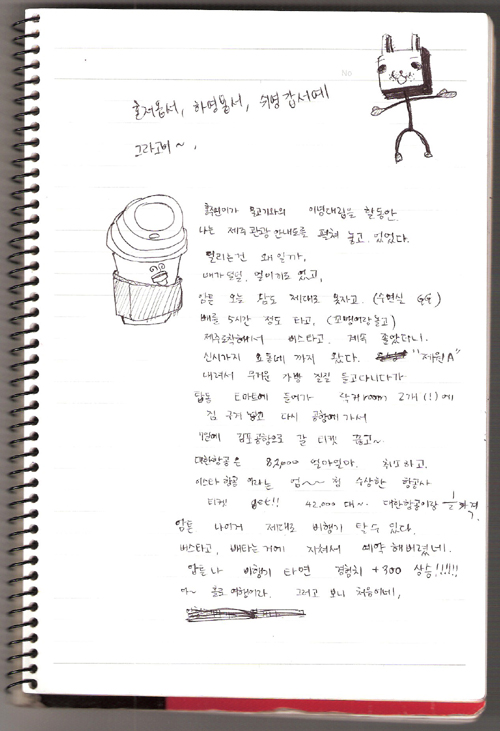 혼저옵서, 하영봅서, 쉬영 갑서예
그라고비~,
No
물고기와의 이녕대립을 할동안
나는 제주관광안내도를 펼쳐 놓고 있었다.
떨리는건 왜일까,
배가 덜덜, 멀미끼도 있고,
암튼 오늘 잠도 제대로 못자고. (수면실 GG)
배를 5시간 정도 타고, (꼬맹이랑 놀고)
에서 버스타고. 계속 졸았다니.
신시가지 까지 왔다. "제원A"
내려서 무거운 가방 질질 들고다니다가
탑동 E마트에 들어가 room 2개(!)에
짐 구겨 넣고 다시 공항에가서
김포공항으로 갈 티켓 끊고~
대한항공은 82,000 얼마일까. 하고.
이스타항공 이라는 엄~~청 수상한 항공사
티켓 get!! 42,000 대~. 대한항공이랑 1/2 가격.
암튼 나이거 제대로 비행기 탈수 있다.
버스타고, 배타는거에 지쳐서 예약해버렸네.
암튼 나 비행기 타면 경험치 +300 상승!!!!!
아~ 홀로여행이라. 그러고 보니 처음이네,